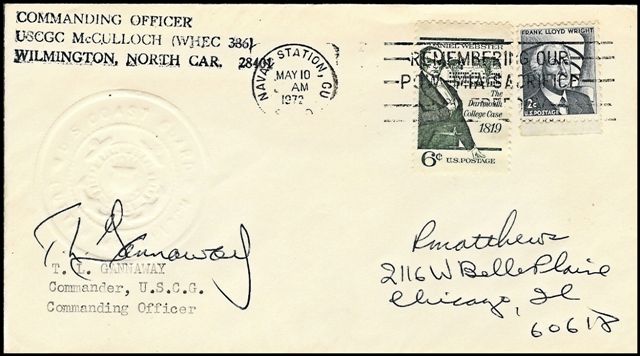 COMMANDING OFFICER
USCGC McCULLOCH (WHEC 386)
WILMINGTON, NORTH CAR. 28401
NAVAL STATION, GU
MAY 10
AM
1972
REMEMBERING OUR
POW-MIA SACRIFICE
DANIEL WEBSTER
The
Dartmouth
College Case
1819
6c U.S. POSTAGE
FRANK LLOYD WRIGHT
2c
U.S. POSTAGE
T. L. Gannaway
T. L. GANNAWAY
Commander, U.S.C.G.
Commanding Officer
R Matthews
2116 W Belle Plaine
Chicago, Il
60618